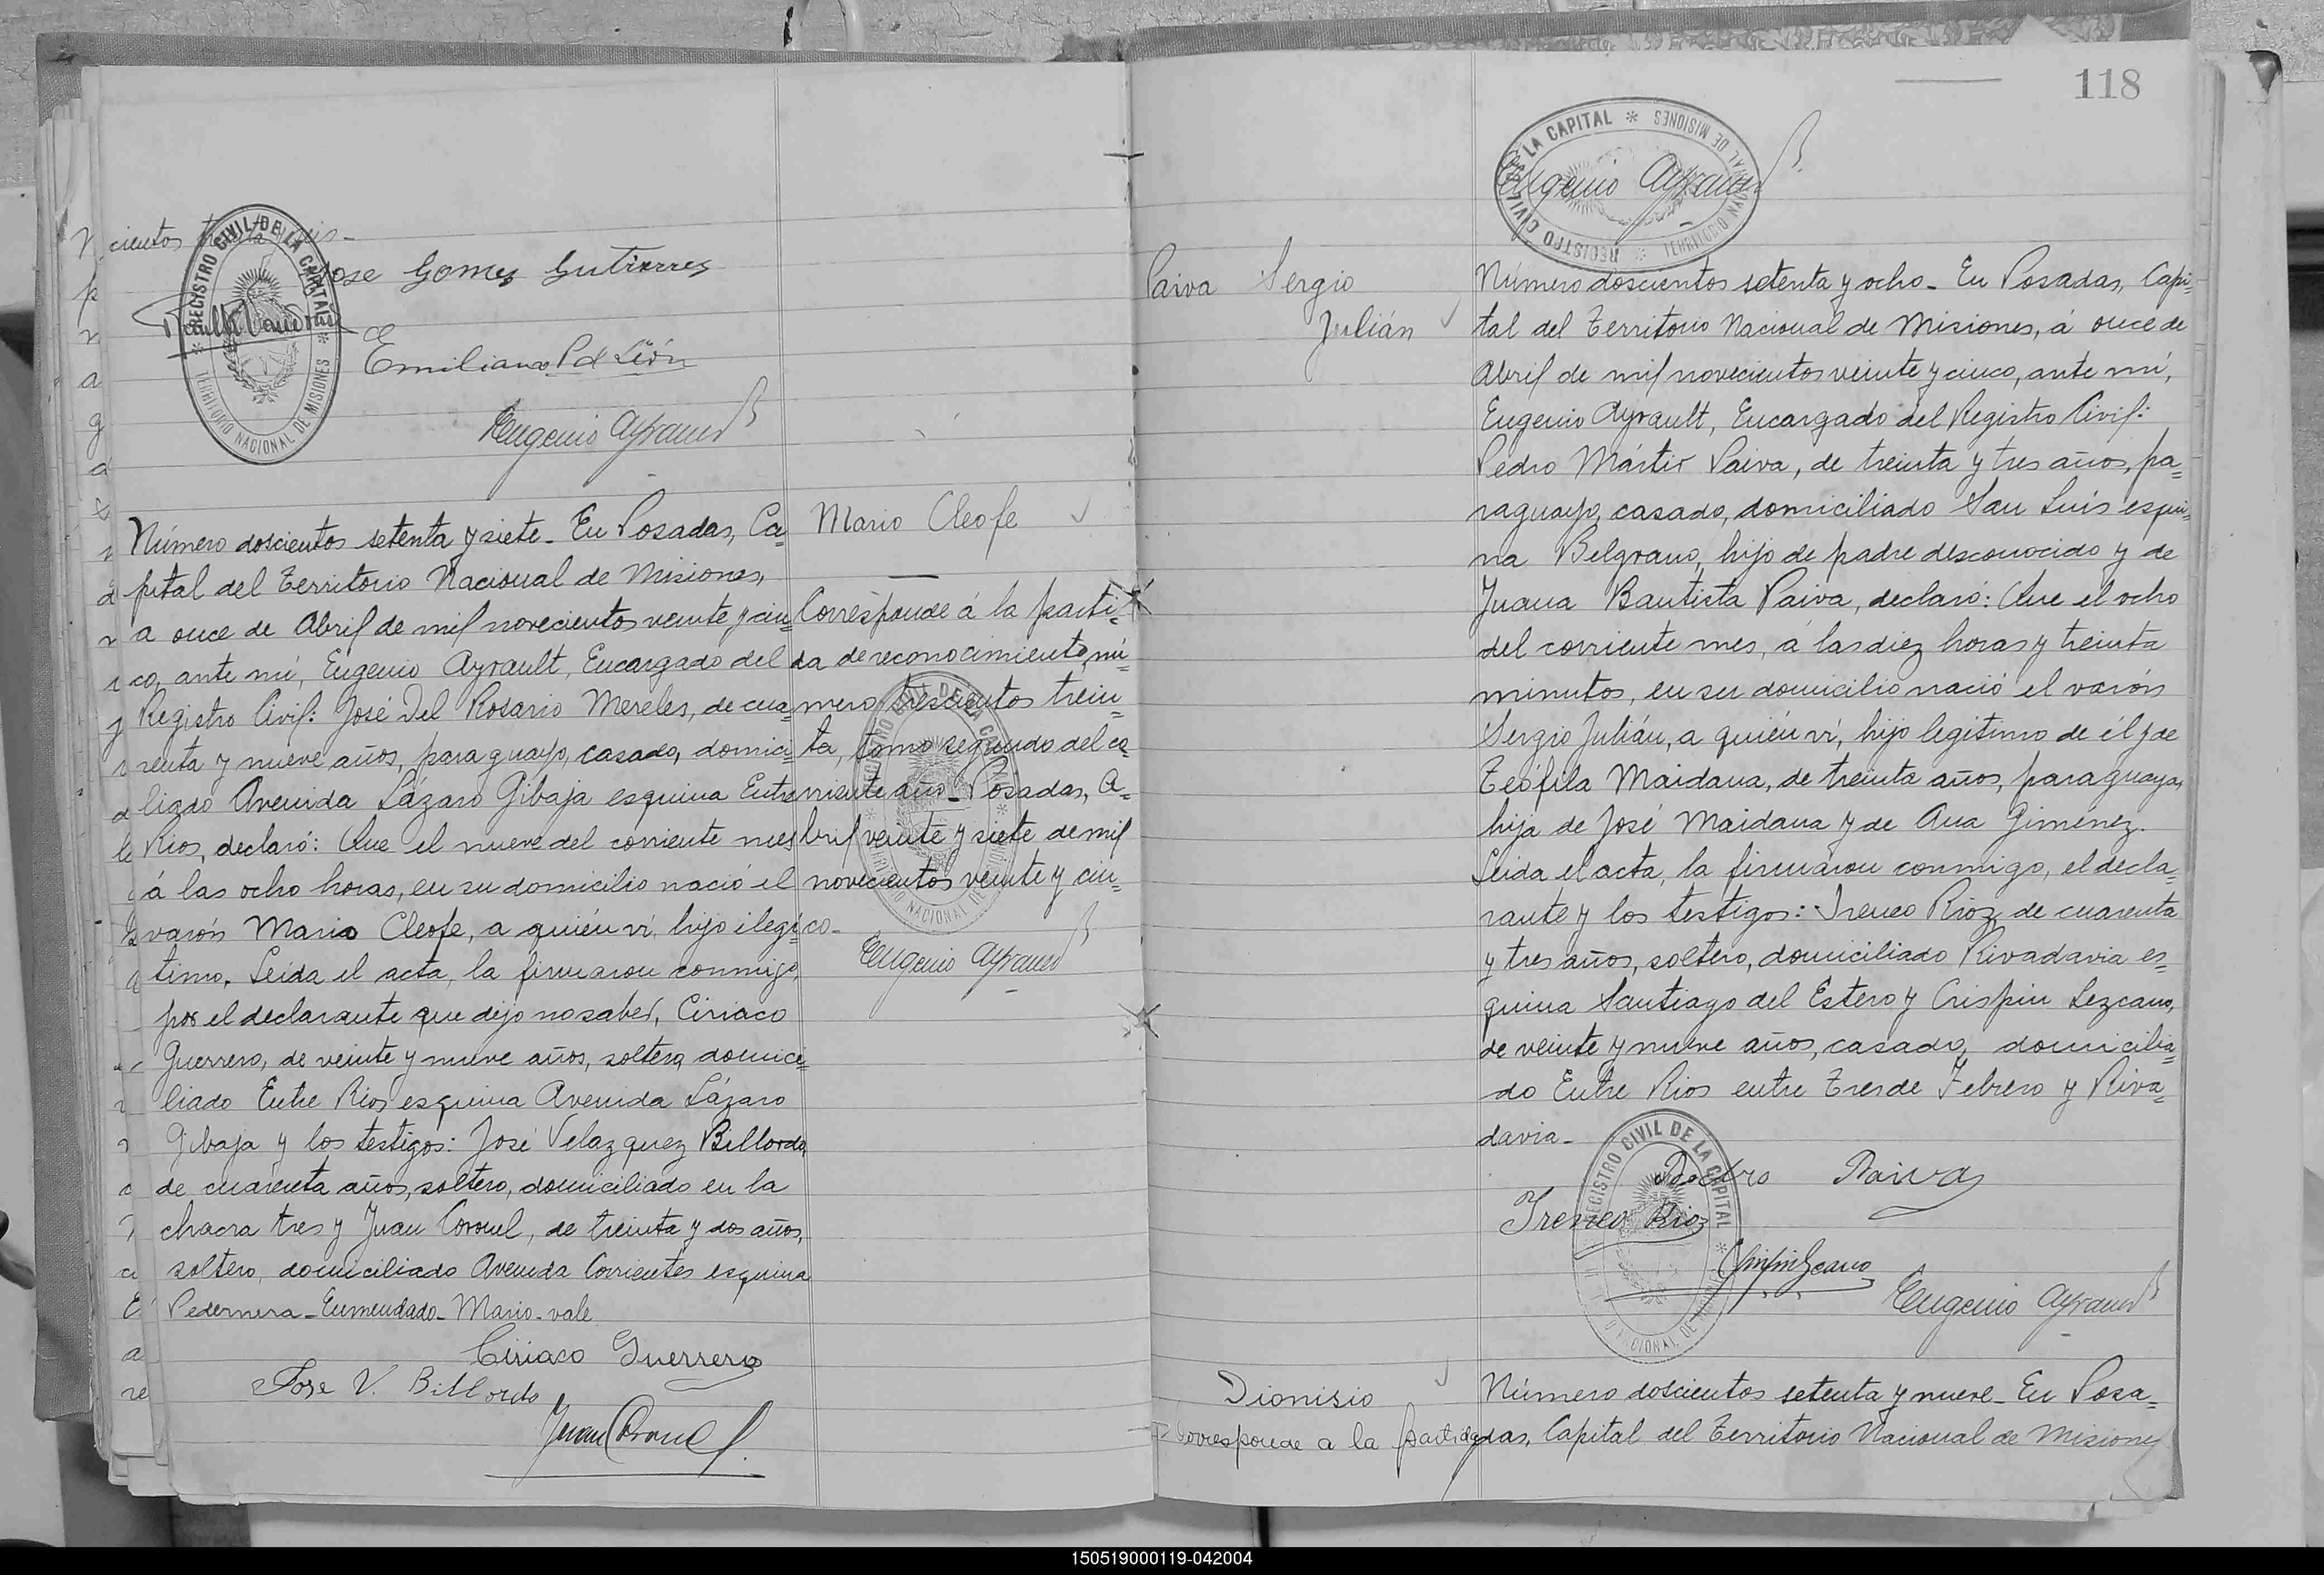 cientos
REGISTRO CIVIL DE LA CAPITAL * TERRITORIO NACIONAL DE MISIONES *
Jose Gomez Gutierres
Emiliano P d León
Eugenio Ayrault
Número doscientos setenta y siete_ En Posadas, Ca=
pital del Territorio Nacional de Misiones,
a once de Abril de mil novecientos veinte y cin=
co, ante mí, Eugenio Ayrault, Encargado del
Registro Civil: José Del Rosario Mereles, de cua=
renta y nueve años, paraguayo, casado, domici=
liado Avenida Lázaro Gibaja esquina Entre
Rios, declaró: Que el nueve del corriente mes
á las ocho horas, en su domicilio nació el
varón Mario Cleofe, a quién ví, hijo ilegí=
timo. Leida el acta, la firmaron conmigo,
por el declarante que dijo no saber, Ciriaco
Guerrero, de veinte y nueve años, soltero, domici=
liado Entre Rios esquina Avenida Lázaro
Gibaja y los testigos: José Velazquez Billordo,
de cuarenta años, soltero, domiciliado en la
chacra tres y Juan Coronel, de treinta y dos años,
soltero, domiciliado Avenida Corrientes esquina
Pedernera_Enmendado_Mario_vale
Ciriaco Guerrero
Jose V. Billordo
Juan Coronel
Mario Cleofe
Corresponde á la parti=
da de reconocimiento, nú=
mero trescientos trein=
ta, tomo segundo del co=
rriente año_ Posadas, A=
bril veinte y siete de mil
novecientos veinte y cin=
co_
Eugenio Ayrault
118
REGISTRO CIVIL DE LA CAPITAL * TERRITORIO NACIONAL DE MISIONES *
Eugenio Ayrault
Paiva Sergio
Julián
Número doscientos setenta y ocho_ En Posadas, Capi=
tal del Territorio Nacional de Misiones, á once de
Abril de mil novecientos veinte y cinco, ante mí,
Eugenio Ayrault, Encargado del Registro Civil:
Pedro Mártir Paiva, de treinta y tres años, pa=
raguayo, casado, domiciliado San Luis esqui=
na Belgrano, hijo de padre desconocido y de
Juana Bautista Paiva, declaró: Que el ocho
del corriente mes, á las diez horas y treinta
minutos, en su domicilio nació el varón
Sergio Julián, a quién ví, hijo legitimo de él y de
Teófila Maidana, de treinta años, paraguaya,
hija de José Maidana y de Ana Gimenez.
Leida el acta, la firmaron conmigo, el decla=
rante y los testigos: Ireneo Rioz, de cuarenta
y tres años, soltero, domiciliado Rivadavia es=
quina Santiago del Estero y Crispin Lezcano,
de veinte y nueve años, casado, domicilia=
do Entre Rios entre Tres de Febrero y Riva=
davia_
REGISTRO CIVIL DE LA CAPITAL
Pedro Paiva
Ireneo Rioz
Eugenio Ayrault
Dionisio
Corresponde a la partida
Número doscientos setenta y nueve_ En Posa=
das, Capital del Territorio Nacional de Misiones
150519000119-042004